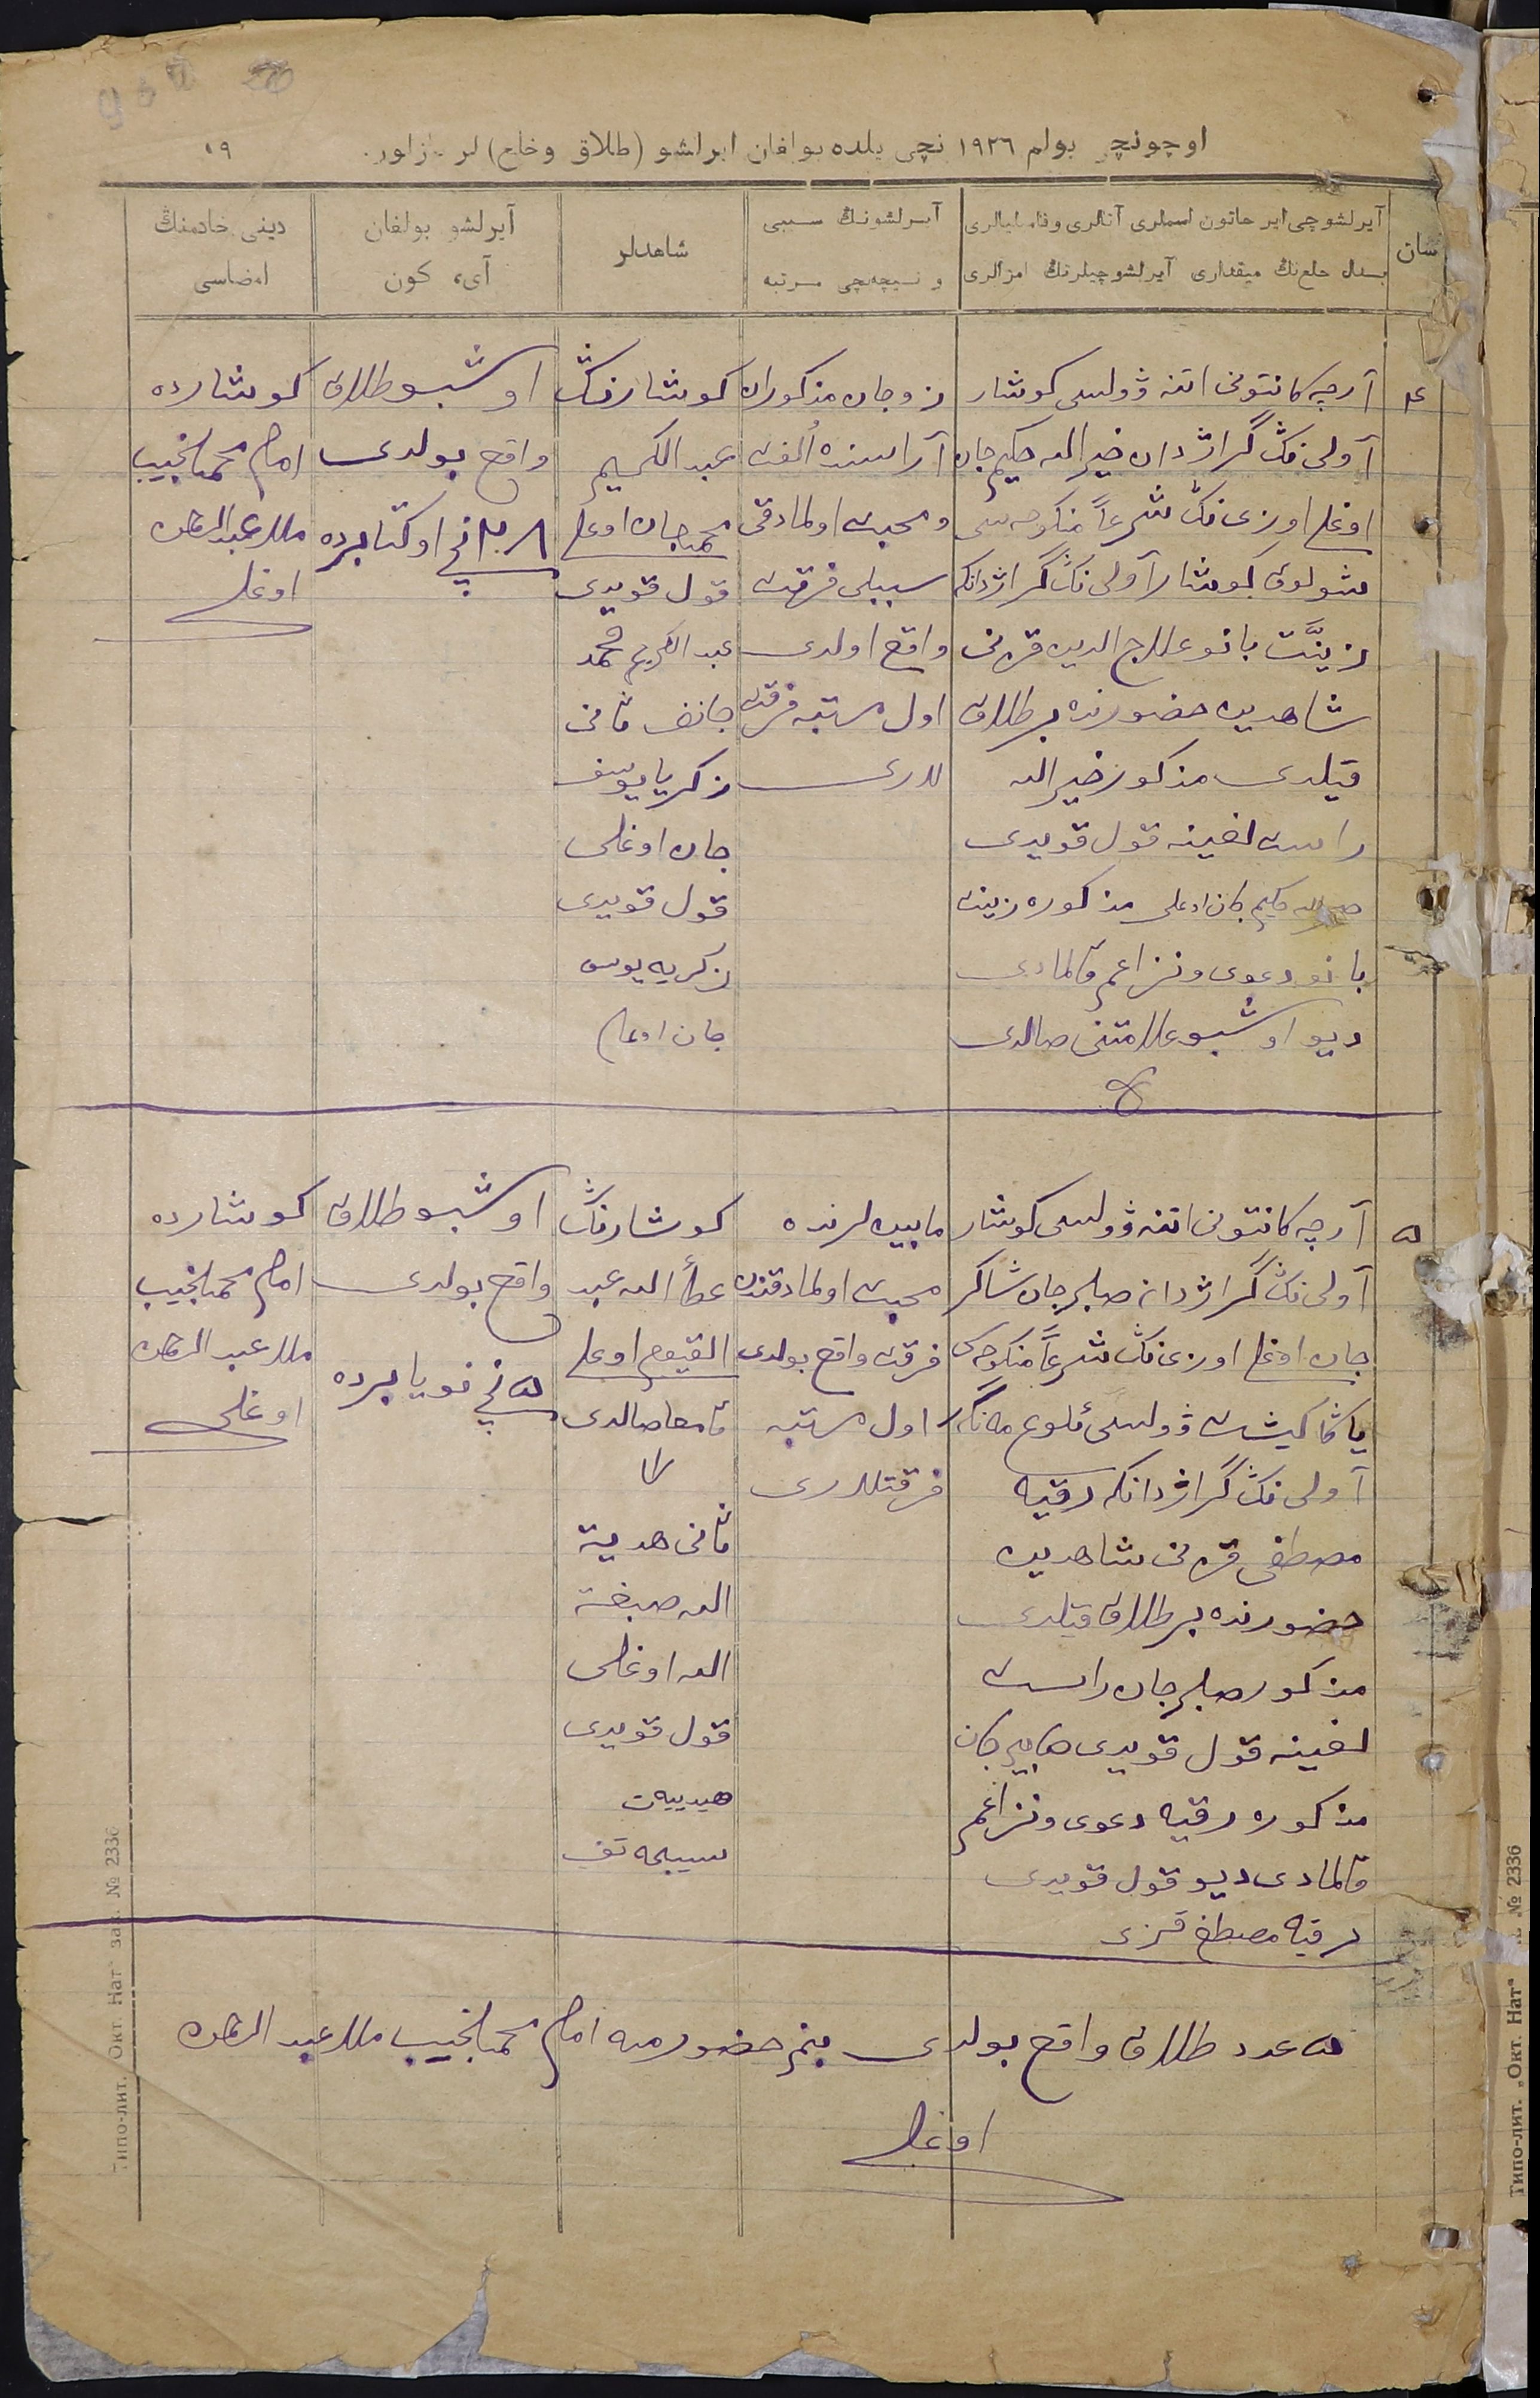 اوچونچی بولم ١٩٢٦ نچی یلده بولغان ایرلشو (طلاق وخلع) لر
١٩
سان
آیرلشوچی ایر خاتون اسملری آتالری وفامیلیالری
بدل خلع‌نڭ میقداری آیرلشوچیلرنڭ امزالری
آیرلشونڭ سببی
و نیچه‌نچی مرتبه
شاهدلر
آیرلشو بولغان
آی، کون
دینی خادمنڭ
امضاسی
٤
آرچه کانتونی اتنه ۋولسی کوشار
آولی‌نڭ گراژدان خیرالله حکیم‌جان
اوغلی اوزی‌نڭ شرعاً منکوحه‌سی
شولوق کوشار آولی‌نڭ گراژدانکه
زینَّت بانو علاج الدین قزنی
شاهدین حضورنده بر طلاق
قیلدی مذکور خیرالله
راست لغینه قول قویدی
حکیم جان اوغلی مذکوره زینت
بانو دعوی ونزاعم قالمادی
دیو اوشبو علامتنی صالدی
زوجان مذکوران
آراسنده اُلفت
ومحبت اولمادقی
سببلی فرقت
واقع اولدی
اول مرتبه فرقت
لدری
کوشارنڭ
عبد الکریم
محمدجان اوغلی
قول قویدی
عبد الکریم محمد
جانف ثانی
زکریا یوسف
جان اوغلی
قول قویدی
زکریه یوسف
جان اوغلی
اوشبو طلاق
واقع بولدی
٢٨ نچی اوکتابرده
کوشارده
امام محمدنجیب
ملا عبدالرحمن
اوغلی
٥
آرچه کانتونی اتنه ۋولسی کوشار
آولی‌نڭ گراژدان صابرجان شاکر
جان اوغلی اوزی‌نڭ شرعاً منکوحه‌سی
ۋولسی
آولی‌نڭ گراژدانکه رقیه
مصطفی قزنی شاهدین
حضورنده بر طلاق قیلدی
مذکور صابرجان راست
لغینه قول قویدی صابیرجان
مذکوره رقیه دعوی ونزاعم
قالمادی دیو قول قویدی
رقیه مصطفی قزی
مابین لرنده
محبت اولمادقندن
فرقت واقع بولدی
اول مرتبه
فرقتلدری
کوشارنڭ
عطأ الله عبد
القیوم اوغلی
تامغا صالدی
ثانی هدیة
الله صبغة
الله اوغلی
قول قویدی
هیدییه‌ت
اوشبو طلاق
واقع بولدی
٥ نچی نویابرده
کوشارده
امام محمدنجیب
ملا عبد الرحمن
اوغلی
٥ عدد طلاق واقع بولدی بنم حضورمده امام محمدنجیب ملا عبد الرحمن
اوغلی
Типо-лит. „Окт. Нат“ зак. № 2336
Типо-лит. „Окт. Нат“ № 2336